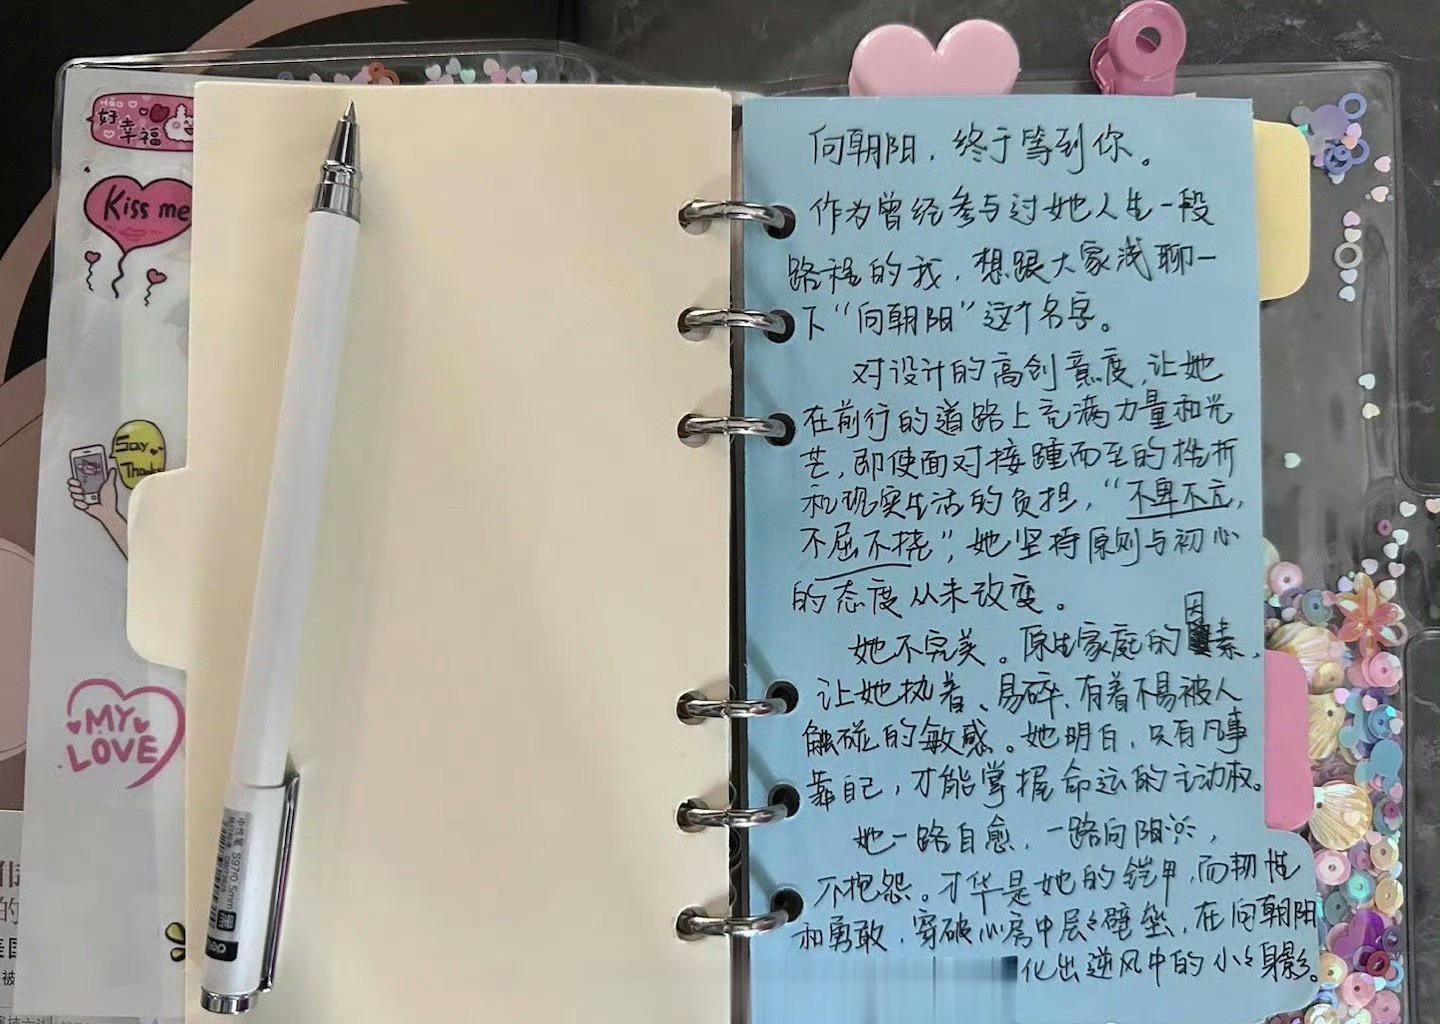 Háo
好
幸福
Kiss me
Say
Thanks
MY
LOVE
的
被
中性笔 S97/0.5mm
黑
deli
向朝阳，终于等到你。
作为曾经参与过她人生一段
路程的我，想跟大家浅聊一
下“向朝阳”这个名字。
对设计的高创意度，让她
在前行的道路上充满力量和光
芒，即使面对接踵而至的挫折
和现实生活的负担，“不卑不亢，
不屈不挠”，她坚持原则与初心
的态度从未改变。
她不完美。原生家庭的因素，
让她执着、易碎、有着不易被人
触碰的敏感。她明白，只有凡事
靠自己，才能掌握命运的主动权。
她一路自愈，一路向阳，
不抱怨。才华是她的铠甲，而韧性
和勇敢，穿破心房中层々壁垒，在向朝阳
化出逆风中的小々身影。